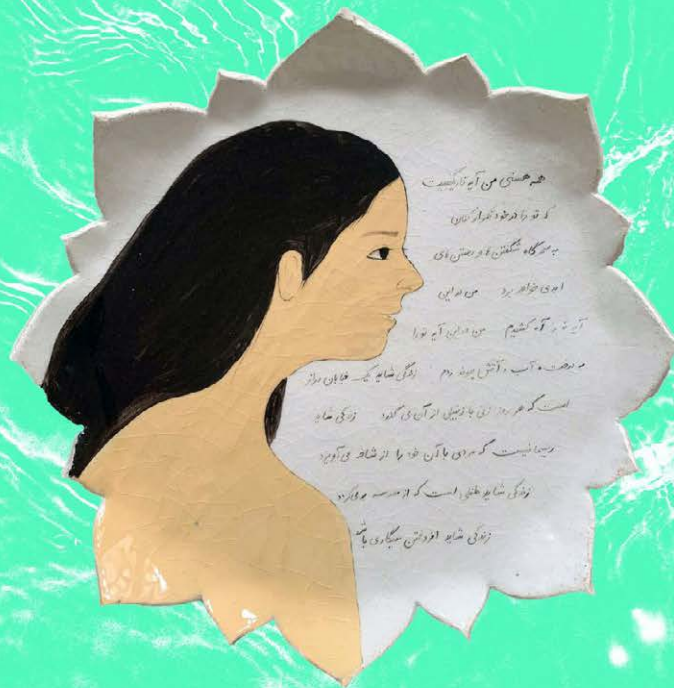 همه هستی من آیه تاریکیست
که تو را در خود تکرار کنان
به سحرگاه شکفتن ها و رستن های
ابدی خواهد برد من در این
آیه تو را آه کشیدم من در این آیه تو را
به درخت و آب و آتش پیوند زدم زندگی شاید یک خیابان دراز
است که هر روز زنی با زنبیلی از آن می گذرد زندگی شاید
ریسمانیست که مردی با آن خود را از شاخه می آویزد
زندگی شاید طفلی است که از مدرسه بر می گردد
زندگی شاید افروختن سیگاری باشد